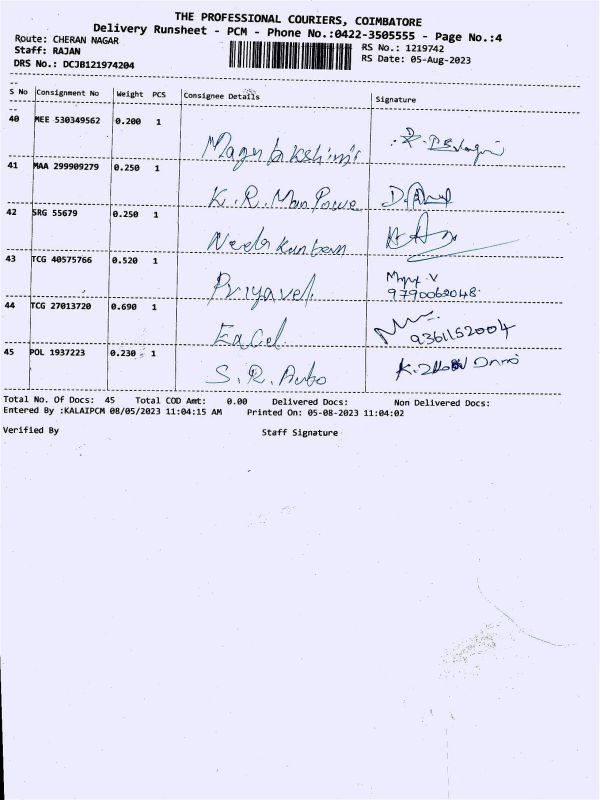 THE PROFESSIONAL COURIERS, COIMBATORE
Delivery Runsheet - PCM - Phone No.:0422-3505555 - Page No.:4
Route: CHERAN NAGAR
RS No.: 1219742
Staff: RAJAN
RS Date: 05-Aug-2023
DRS No.: DCJB121974204
S No Consignment No Weight PCS Consignee Details Signature
40 MEE 530349562 0.200 1
41 MAA 299909279 0.250 1 K.R. Man Powe
42 SRG 55679 0.250 1
43 TCG 40575766 0.520 1 Priyavel
9790062048
44 TCG 27013720 0.690 1
9361152004
45 POL 1937223 0.230 1 S.R. Auto
Total No. Of Docs: 45 Total COD Amt: 0.00 Delivered Docs: Non Delivered Docs:
Entered By :KALAIPCM 08/05/2023 11:04:15 AM Printed On: 05-08-2023 11:04:02
Verified By Staff Signature